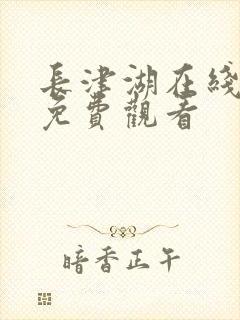 長津湖在綫
免費觀看
暗香正午